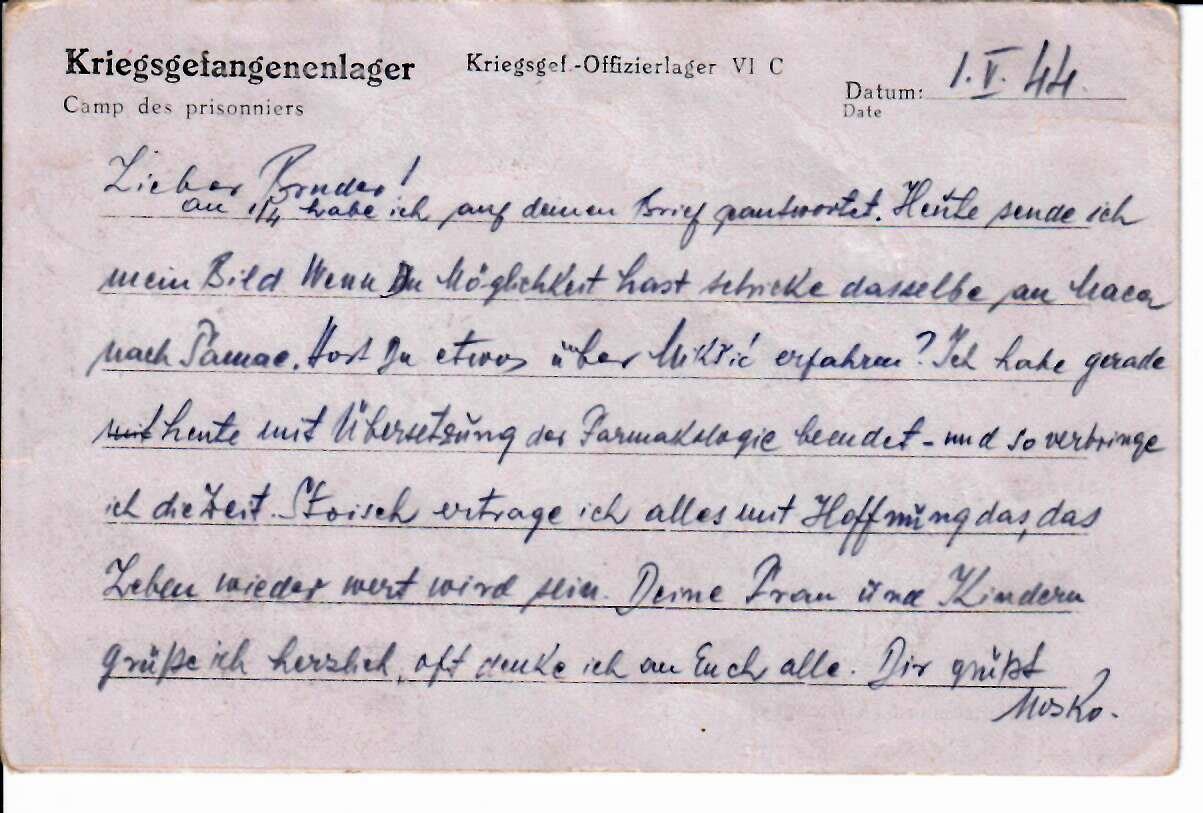 Kriegsgefangenenlager
Camp des prisonniers
Kriegsgef.-Offizierlager VI C
Datum: 1. V. 44.
Date
Lieber Bruder!
an 1/4 habe ich auf deinen Brief geantwortet. Heute sende ich
mein Bild Wenn Du Möglichkeit hast schicke dasselbe an Maca
nach Šamac. Hast Du etwas über Mikšić erfahren? Ich habe gerade
mit heute mit Übersetzung der Farmakologie beendet - und so verbringe
ich die Zeit. Stoisch ertrage ich alles mit Hoffnung das, das
Leben wieder wert wird sein. Deine Frau und Kindern
grüße ich herzlich, oft denke ich an Euch alle. Dir grüßt
Mosko.